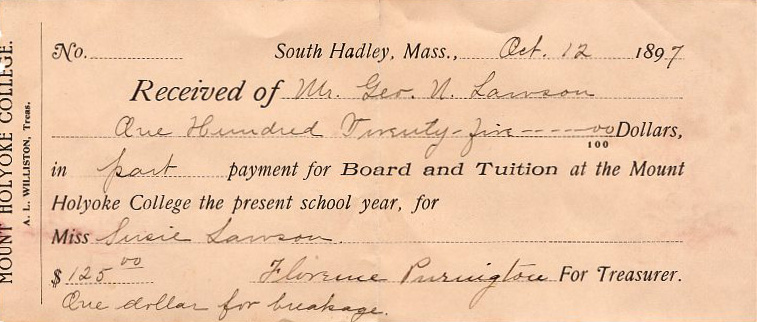 MOUNT HOLYOKE COLLEGE.
A. L. WILLISTON, Treas.
No. South Hadley, Mass., Oct. 12 1897
Received of Mr. Geo. N. Lawson
One Hundred Twenty-five ----- 00/100 Dollars,
in part payment for Board and Tuition at the Mount
Holyoke College the present school year, for
Miss Susie Lawson.
$125.00 Florence Purington For Treasurer.
One dollar for breakage.